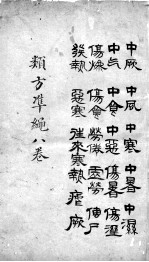 中厥 中風 中寒 中暑 中濕
中气 中食 中惡 傷暑 傷濕
傷燥 傷食 勞倦 虛勞 伸尸
發熱 惡寒 往來寒熱 瘧 厥
類方準繩八卷